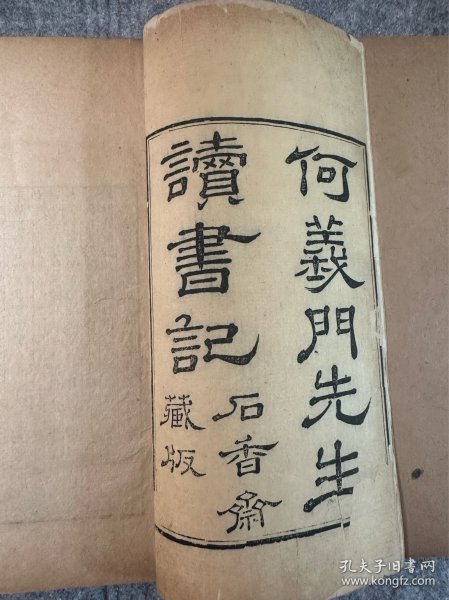 何義門先生
讀書記
石香齋
藏版
孔夫子旧书网
www.kongfz.com